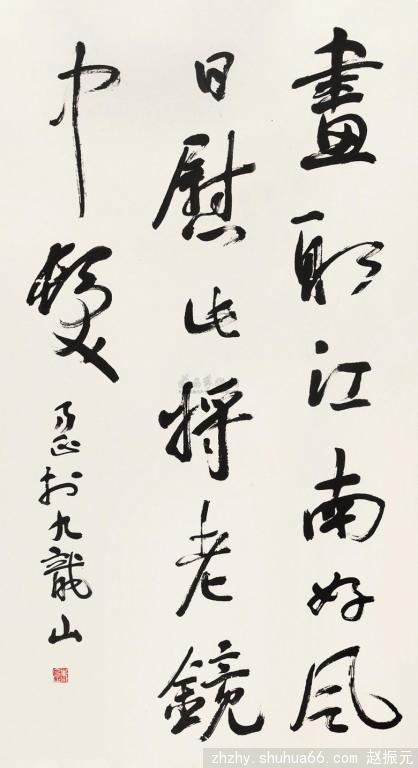 畫取江南好風
日慰此將老鏡
中髮
於九龍山
zhzhy.shuhua66.com 赵振元